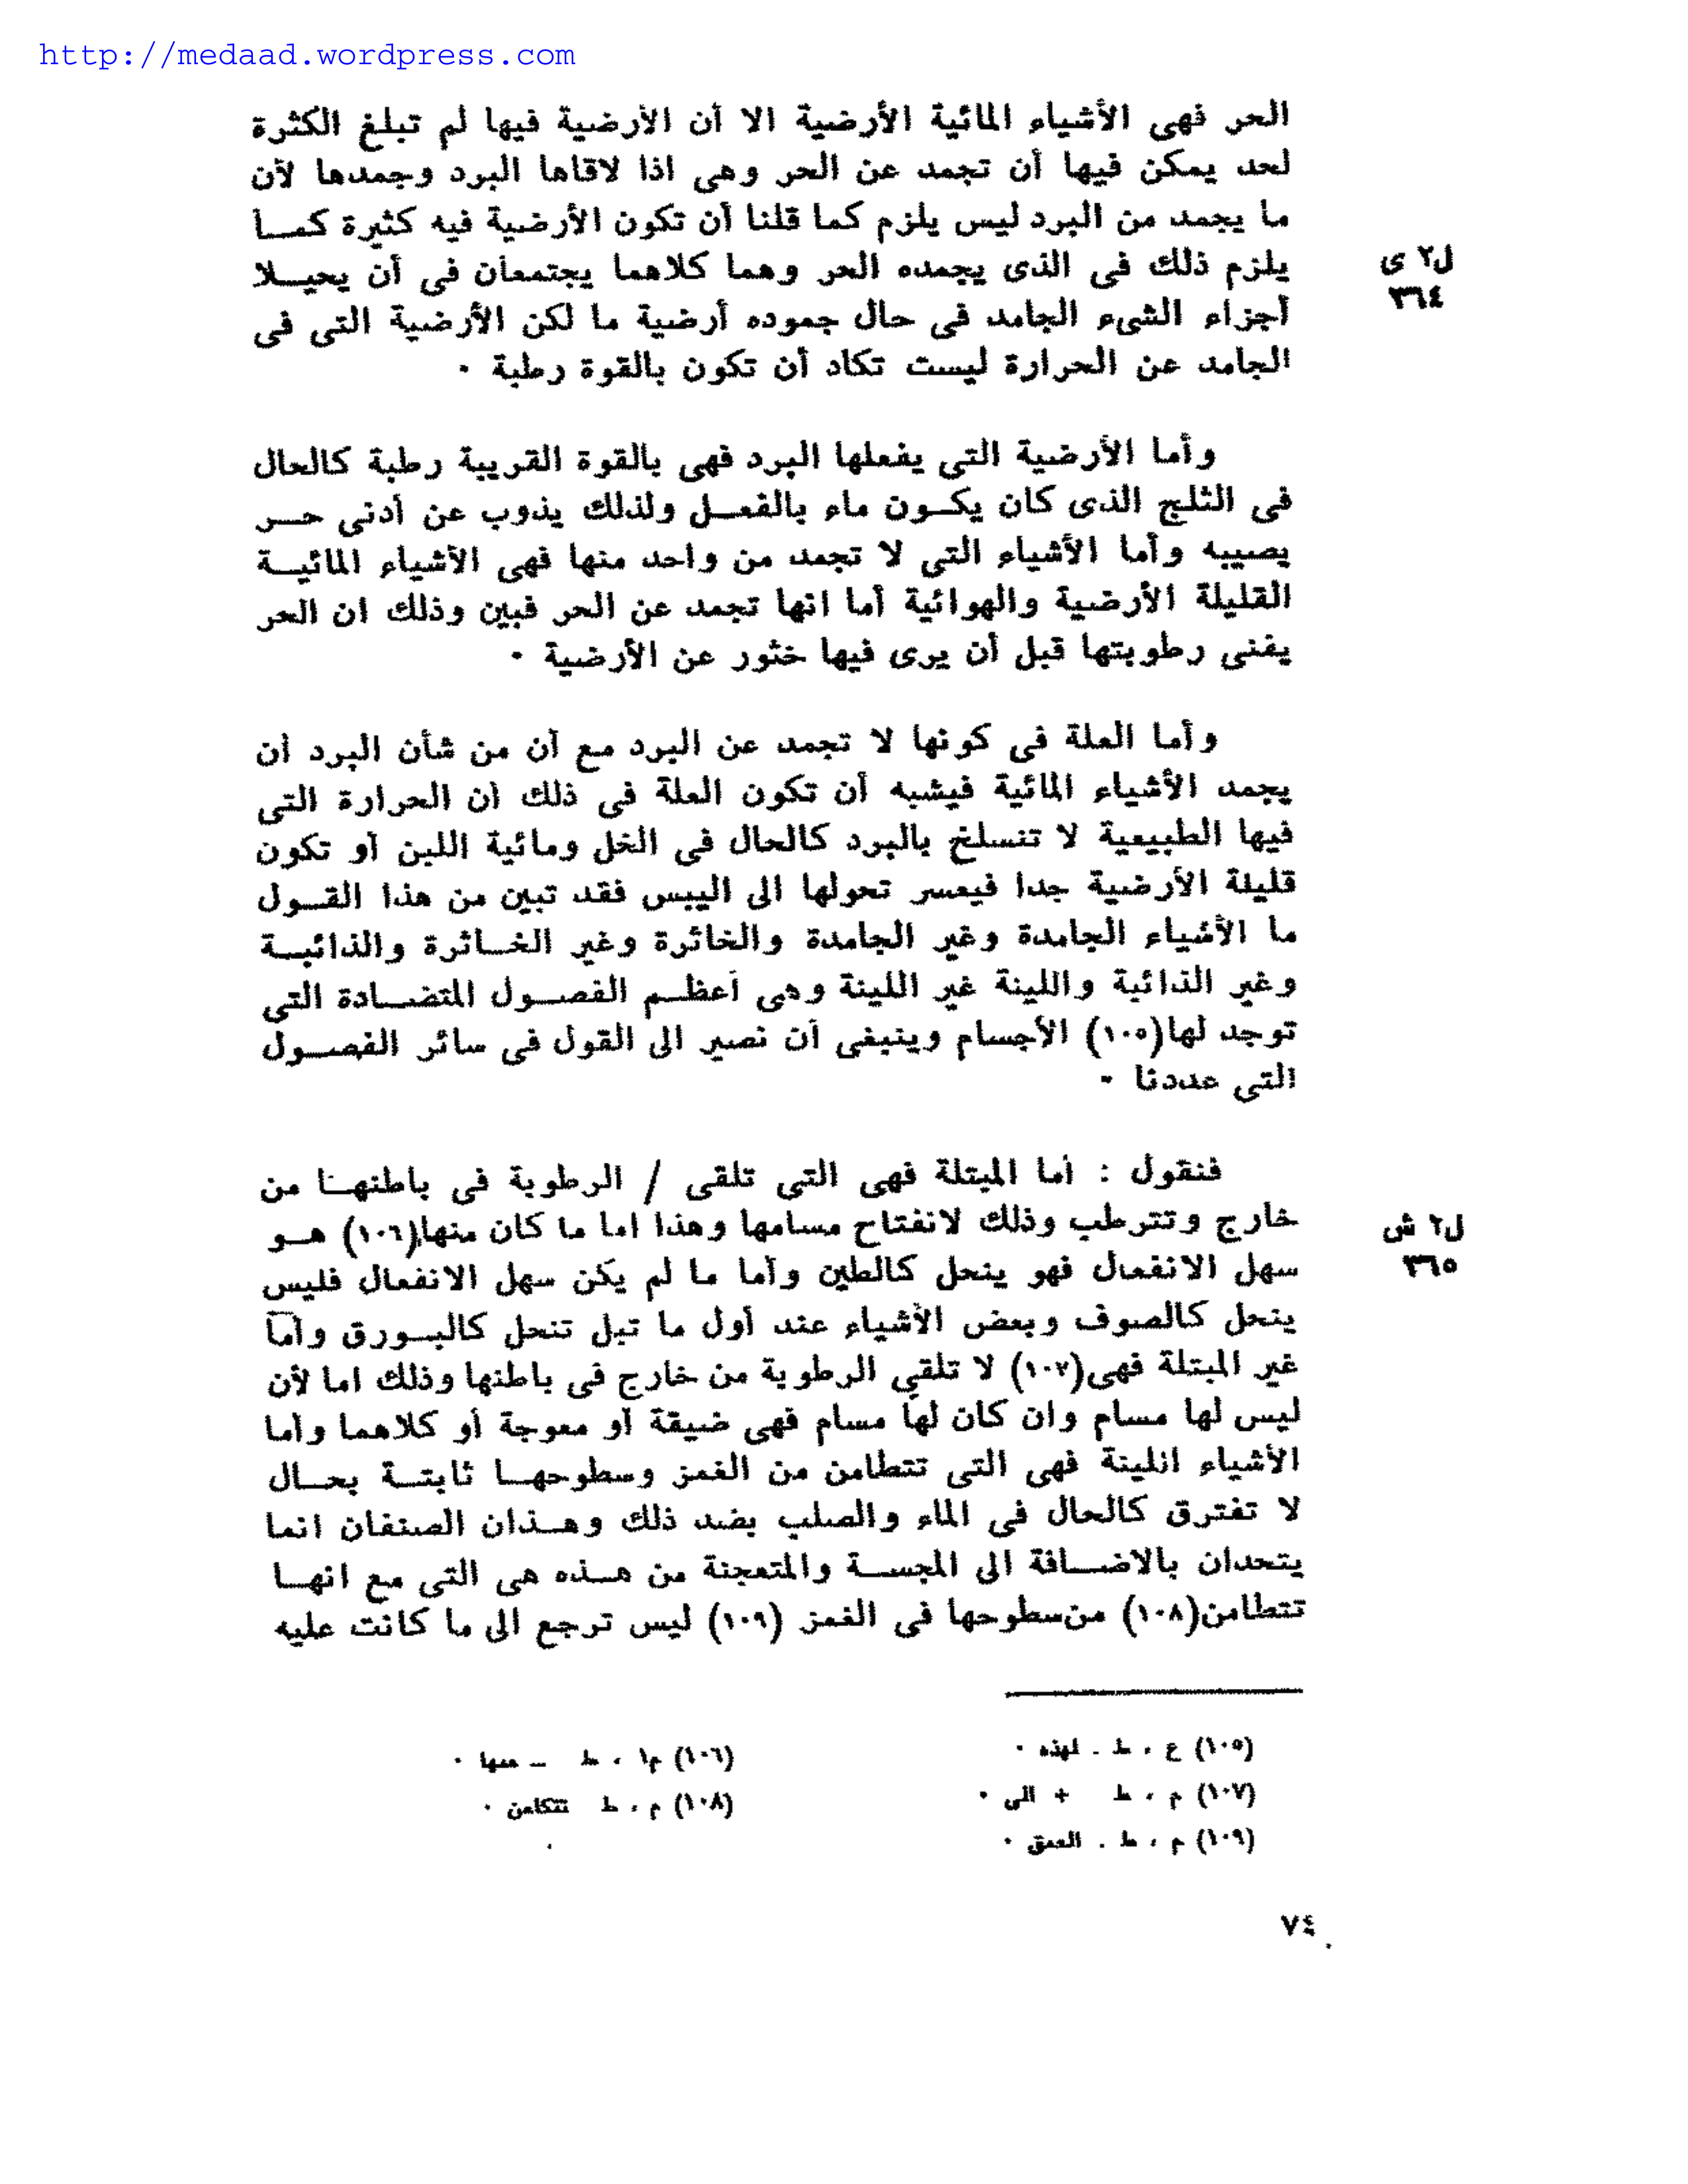 http://medaad.wordpress.com
الحر فهى الأشياء المائية الأرضية الا أن الأرضية فيها لم تبلغ الكثرة
لحد يمكن فيها أن تجمد عن الحر وهى اذا لاقاها البرد وجمدها لأن
ما يجمد من البرد ليس يلزم كما قلنا أن تكون الأرضية فيه كثيرة كما
يلزم ذلك فى الذى يجمده الحر وهما كلاهما يجتمعان فى أن يحيلا
ل٢ ى
٣٦٤
أجزاء الشىء الجامد فى حال جموده أرضية ما لكن الأرضية التى فى
الجامد عن الحرارة ليست تكاد أن تكون بالقوة رطبة ٠
وأما الأرضية التى يفعلها البرد فهى بالقوة القريبة رطبة كالحال
فى الثلج الذى كان يكون ماء بالفعل ولذلك يذوب عن أدنى حر
يصيبه وأما الأشياء التى لا تجمد من واحد منها فهى الأشياء المائية
القليلة الأرضية والهوائية أما انها تجمد عن الحر فبين وذلك ان الحر
يفنى رطوبتها قبل أن يرى فيها خثور عن الأرضية ٠
وأما العلة فى كونها لا تجمد عن البرد مع أن من شأن البرد أن
يجمد الأشياء المائية فيشبه أن تكون العلة فى ذلك أن الحرارة التى
فيها الطبيعية لا تنسلخ بالبرد كالحال فى الخل ومائية اللبن أو تكون
قليلة الأرضية جدا فيعسر تحولها الى اليبس فقد تبين من هذا القول
ما الأشياء الجامدة وغير الجامدة والخاثرة وغير الخاثرة والذائبة
وغير الذائبة واللينة غير اللينة وهى أعظم الفصول المتضادة التى
توجد لها(١٠٥) الأجسام وينبغى أن نصير الى القول فى سائر الفصول
التى عددنا ٠
فنقول : أما المبتلة فهى التى تلقى / الرطوبة فى باطنها من
خارج وتترطب وذلك لانفتاح مسامها وهذا اما ما كان منها(١٠٦) هو
ل٢ ش
٣٦٥
سهل الانفعال فهو ينحل كالطين وأما ما لم يكن سهل الانفعال فليس
ينحل كالصوف وبعض الأشياء عند أول ما تبل تنحل كالبورق وأما
غير المبتلة فهى(١٠٧) لا تلقى الرطوبة من خارج فى باطنها وذلك اما لأن
ليس لها مسام وان كان لها مسام فهى ضيقة أو معوجة أو كلاهما وأما
الأشياء انلينة فهى التى تتطامن من الغمز وسطوحها ثابتة بحال
لا تفترق كالحال فى الماء والصلب بضد ذلك وهذان الصنفان انما
يتحدان بالاضافة الى المجسة والمتعجنة من هذه هى التى مع انها
تتطامن(١٠٨) من سطوحها فى الغمز (١٠٩) ليس ترجع الى ما كانت عليه
(١٠٥) ع ، ط . لهذه ٠
(١٠٦) م١ ، ط – منها ٠
(١٠٧) م ، ط + الى ٠
(١٠٨) م ، ط تتكامن ٠
(١٠٩) م ، ط . العمق ٠
٧٤